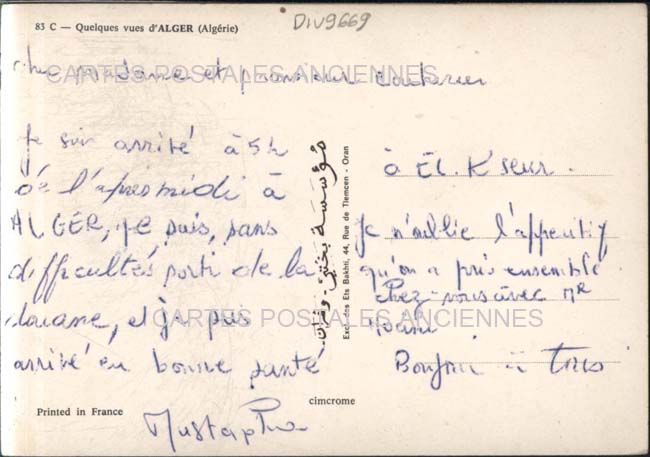 83 C — Quelques vues d'ALGER (Algérie)
DIV9669
madame et monsieur
CARTES POSTALES ANCIENNES
Je sui arrivé à 5h
de l'apresmidi à
ALGER, je suis, sans
difficultés sorti de la
douane, et je suis
arrivé en bonne santé
Mustapha
مؤسسة بختي - وهران
Exclu des Ets Bakhti, 44, Rue de Tlemcen - Oran
à EL. K'seur.
Je n'oublie l'apperitif
qu'on a pris ensemble
chez-vous avec Mr
CARTES POSTALES ANCIENNES
Bonjour à Tous
Printed in France
cimcrome